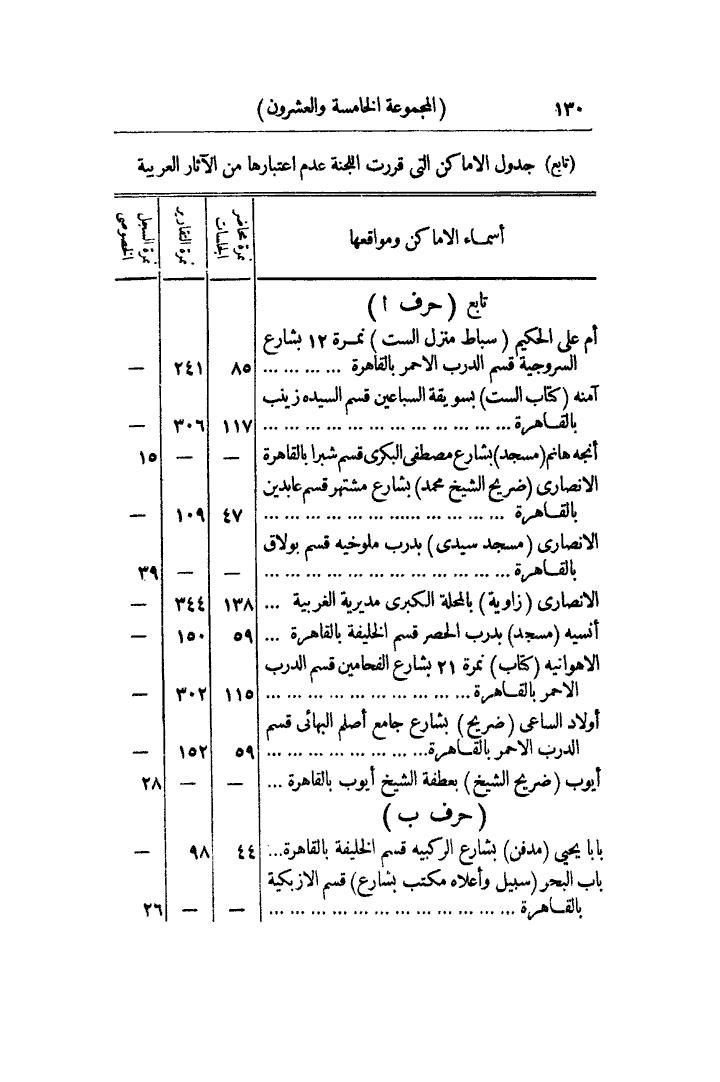 ١٣٠ (المجموعة الخامسة والعشرون)
(تابع) جدول الاماكن التى قررت اللجنة عدم اعتبارها من الآثار العربية
أسماء الاماكن ومواقعها
نمرة محاضر الجلسات
نمرة التقارير
نمرة السجل الخصوصى
تابع (حرف ا)
أم على الحكيم (سباط منزل الست) نمرة ١٢ بشارع
السروجية قسم الدرب الاحمر بالقاهرة ... ... ... ... ٨٥ ٢٤١ —
آمنه (كتاب الست) بسويقة السباعين قسم السيده زينب
بالقاهرة ... ... ... ... ... ... ... ... ... ... ... ... ١١٧ ٣٠٦ —
أنجه هانم (مسجد) بشارع مصطفى البكرى قسم شبرا بالقاهرة — — ١٥
الانصارى (ضريح الشيخ محمد) بشارع مشتهر قسم عابدين
بالقاهرة ... ... ... ... ...... ... ... ... ... ... ٤٧ ١٠٩ —
الانصارى (مسجد سيدى) بدرب ملوخيه قسم بولاق
بالقاهرة ... ... ... ... ... ... ... ... ... ... ... ... — — ٣٩
الانصارى (زاوية) بالمحلة الكبرى مديرية الغربية ... ١٣٨ ٣٤٤ —
أنسيه (مسجد) بدرب الحصر قسم الخليفة بالقاهرة ... ٥٩ ١٥٠ —
الاهوانيه (كتاب) نمرة ٢١ بشارع الفحامين قسم الدرب
الاحمر بالقاهرة ... ... ... ... ... ... ... ... ... ... ١١٥ ٣٠٢ —
أولاد الساعى (ضريح) بشارع جامع أصلم البهائى قسم
الدرب الاحمر بالقاهرة... ... ... ... ... ... ... ... ٥٩ ١٥٢ —
أيوب (ضريح الشيخ) بعطفة الشيخ أيوب بالقاهرة ... — — ٢٨
(حرف ب)
بابا يحيى (مدفن) بشارع الركبيه قسم الخليفة بالقاهرة... ٤٤ ٩٨ —
باب البحر (سبيل وأعلاه مكتب بشارع) قسم الازبكية
بالقاهرة ... ... ... ... ... ... ... ... ... ... ... ... — — ٢٦